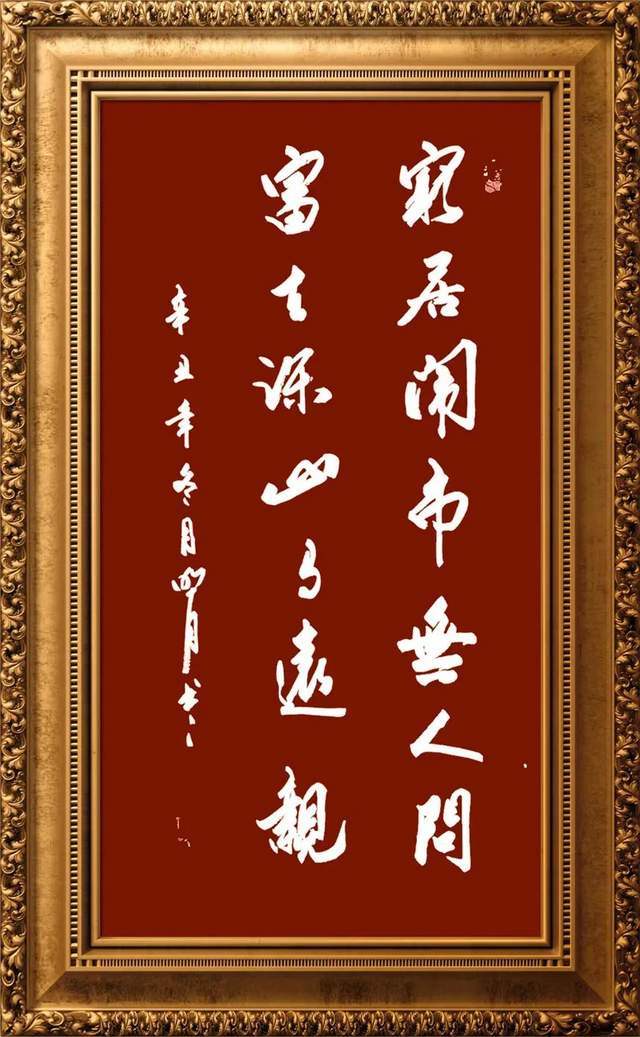 窮居闹市無人問
富在深山有遠親
辛丑年冬月月书